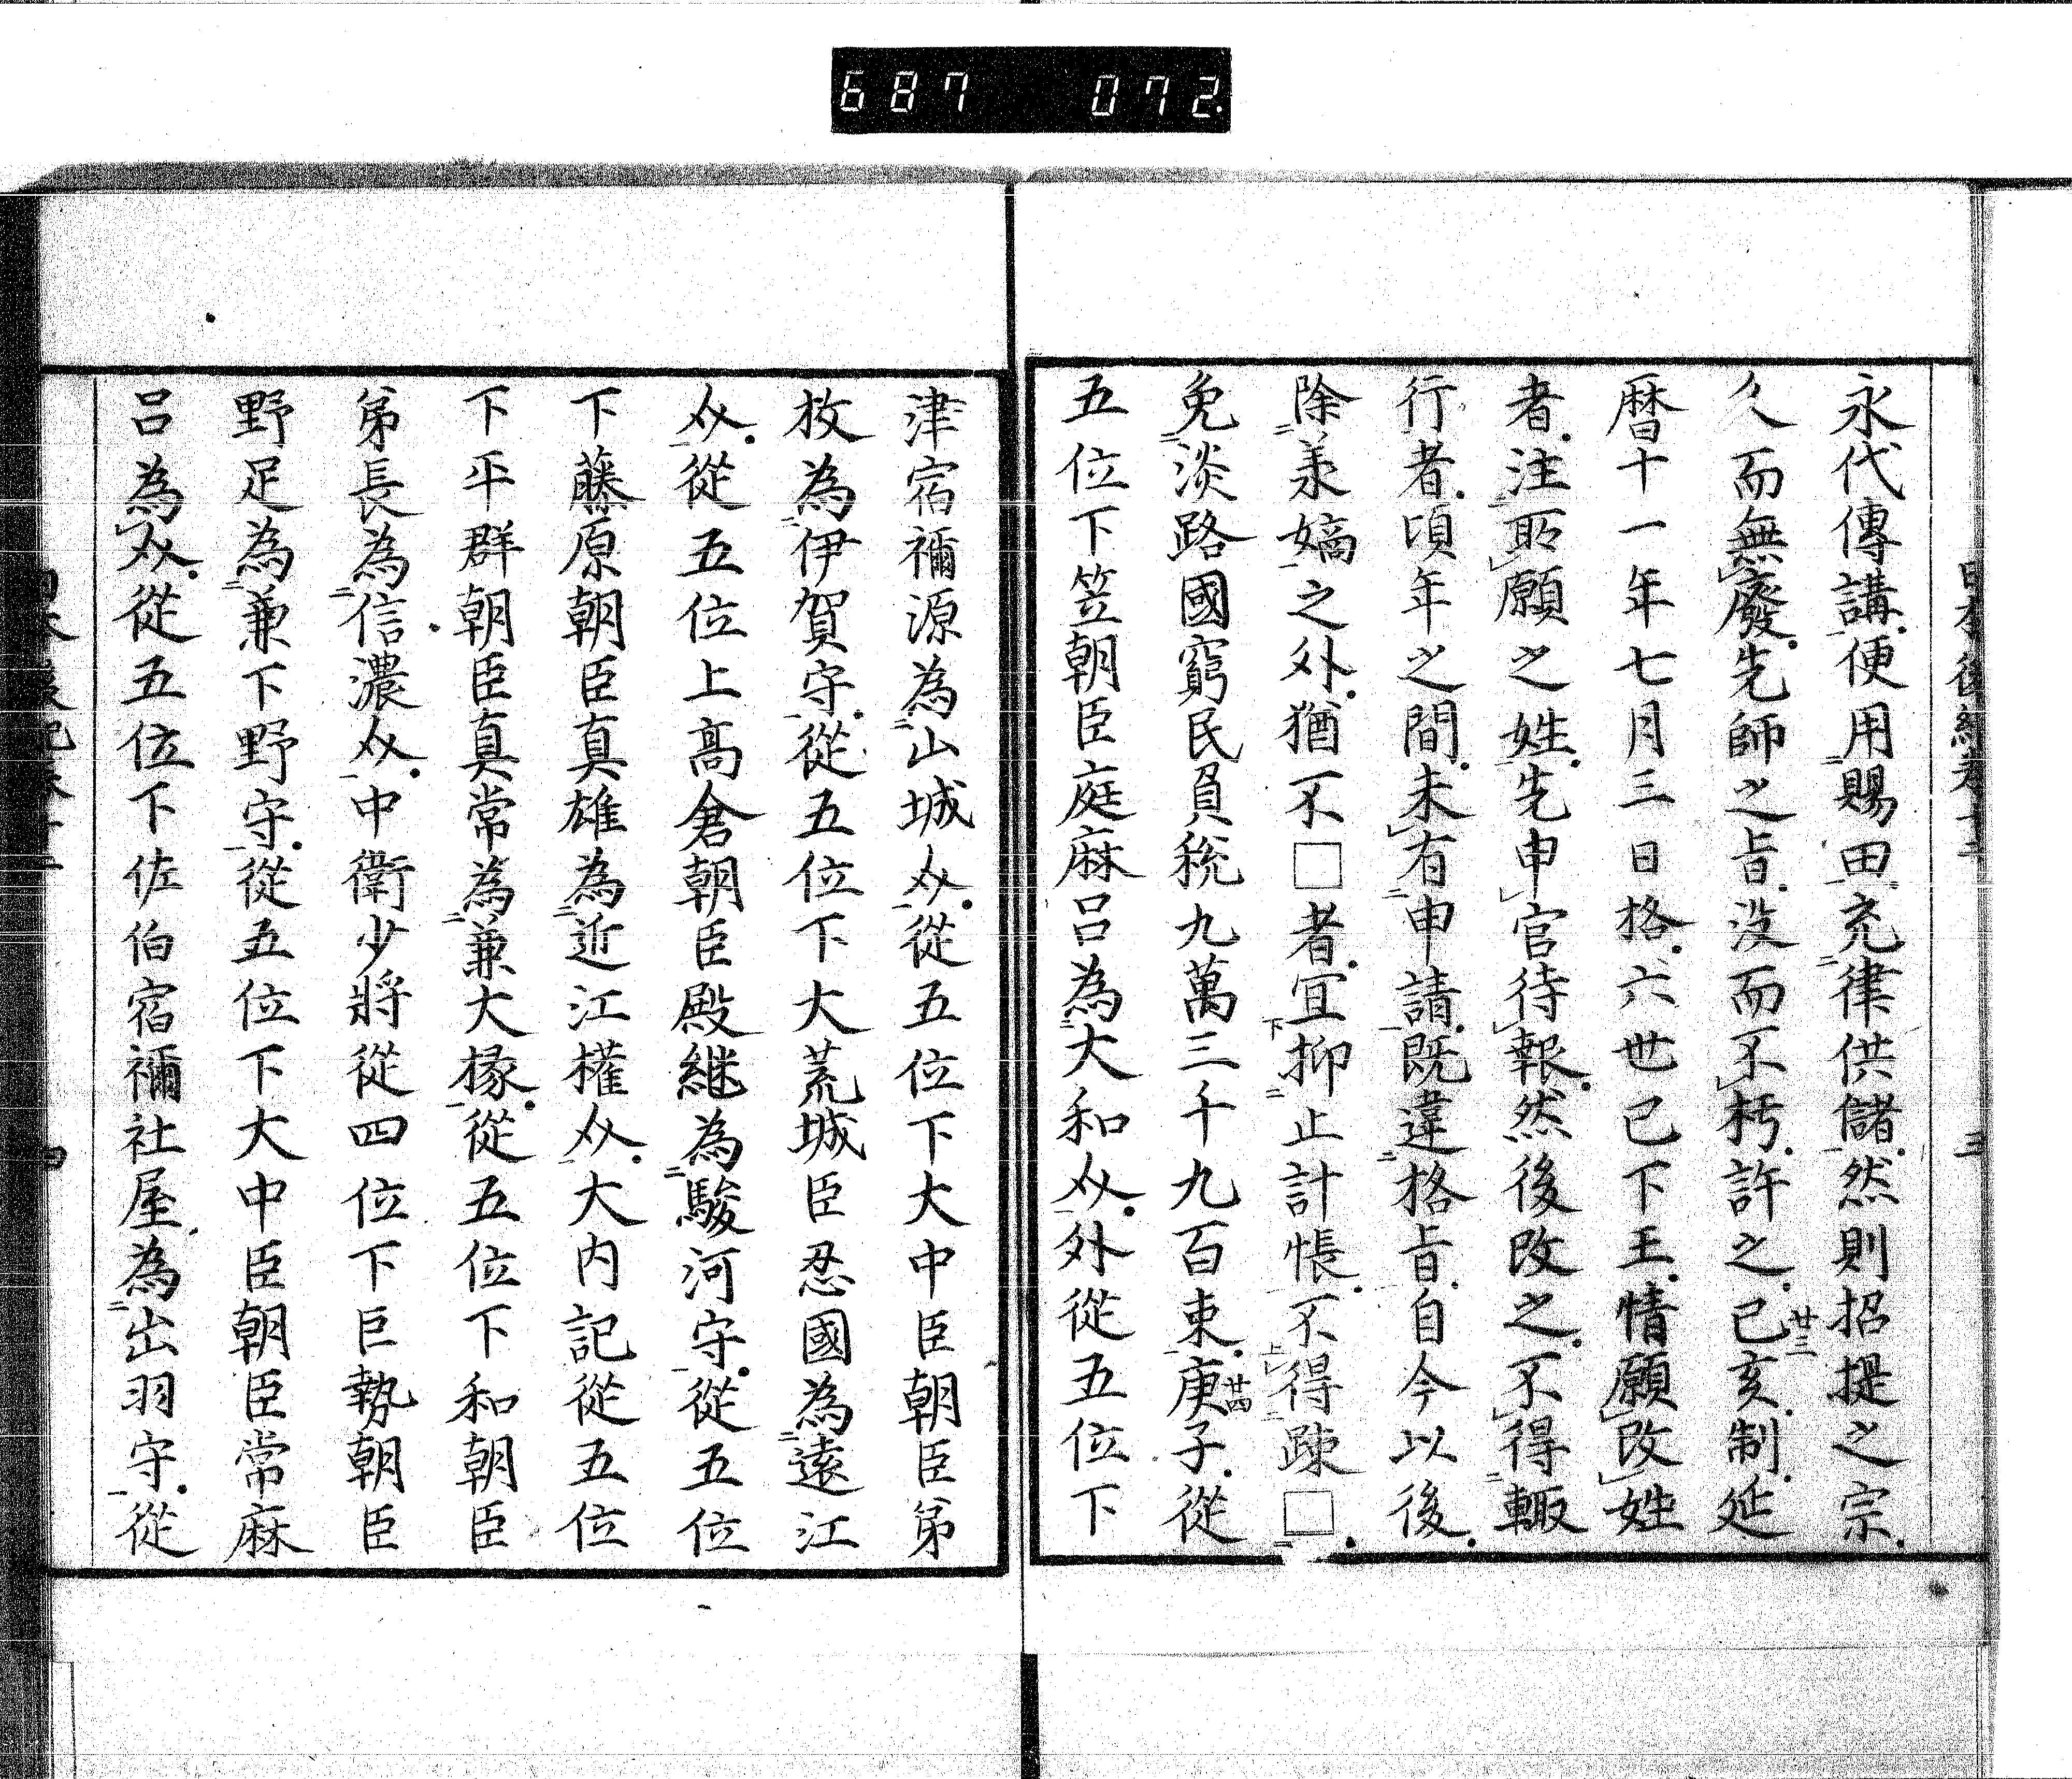 687 072.
永代傳講便用賜田充律供儲然則招提之宗
久而無廢先師之旨没而不朽許之己亥廿三制延
暦十一年七月三日格六世已下王情願改姓
者注所願之姓先申官待報然後改之不得輙
行者頃年之間未有申請既違格旨自今以後
除承嫡之外猶不□者宜抑止計帳不得踈□
免淡路國窮民負税九萬三千九百束庚廿四子從
五位下笠朝臣庭麻呂為大和介外從五位下
津宿禰源為山城介從五位下大中臣朝臣第
枚為伊賀守從五位下大荒城臣忍國為遠江
介從五位上高倉朝臣殿継為駿河守從五位
下藤原朝臣真雄為近江權介大内記從五位
下平群朝臣真常為兼大掾從五位下和朝臣
第長為信濃介中衛少將從四位下巨勢朝臣
野足為兼下野守從五位下大中臣朝臣常麻
呂為介從五位下佐伯宿禰社屋為出羽守從